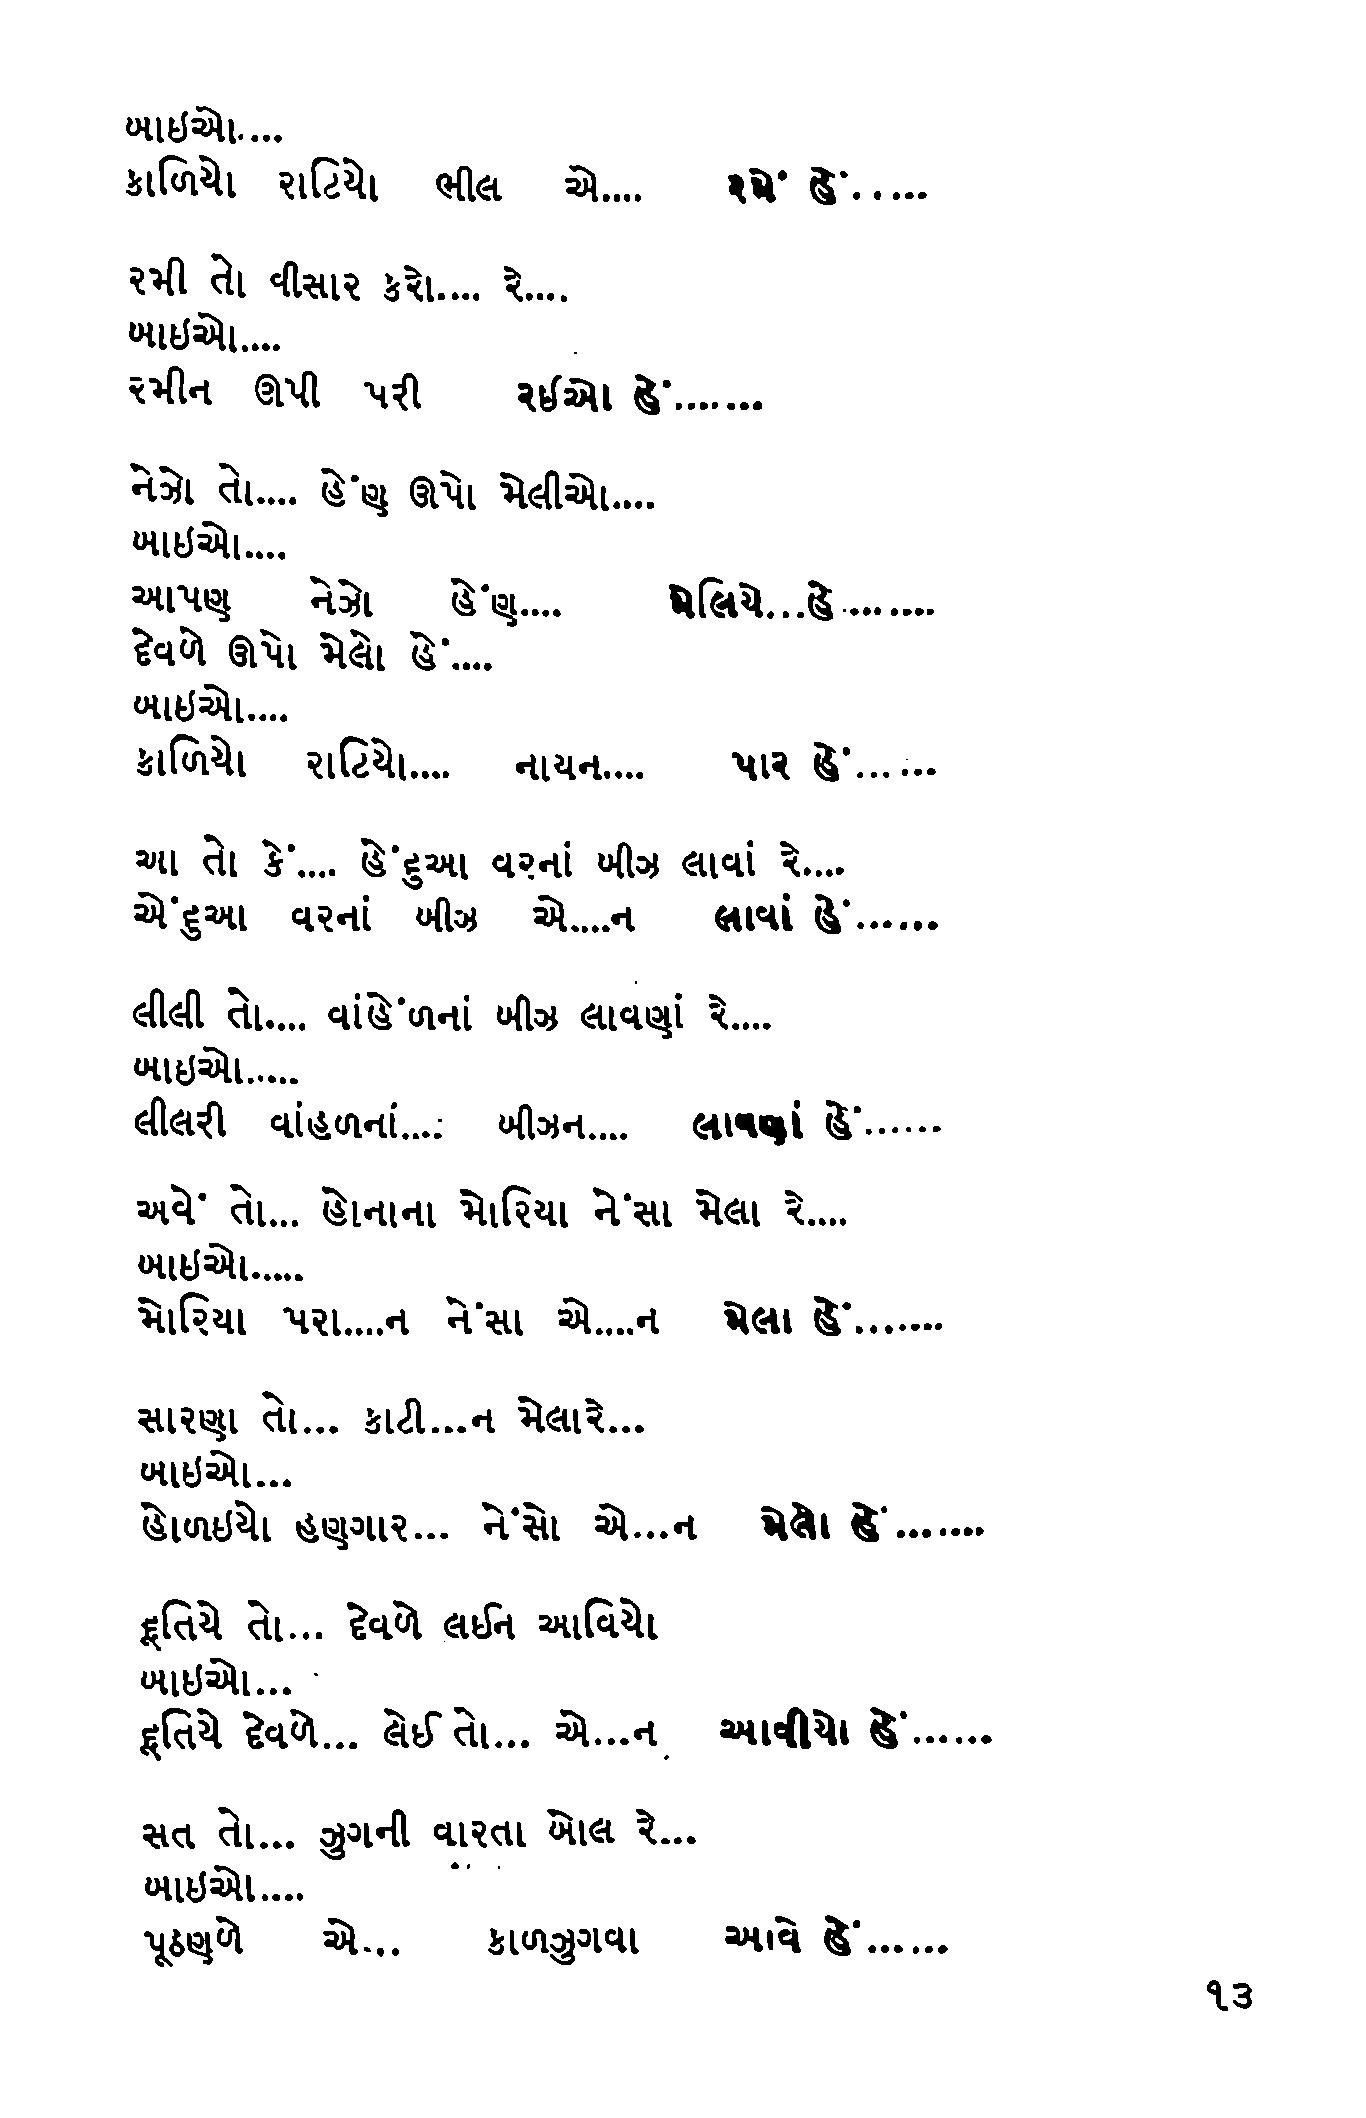 બાઇઓ....
કાળિયો રાટિયો ભીલ એ.... રમેં હેં......
રમી તો વીસાર કરો.... રે....
બાઇઓ....
રમીન ઊપી પરી રઈઓ હેં.......
નેઝો તો.... હેંણુ ઊપો મેલીઓ....
બાઇઓ....
આપણુ નેઝો હેંણ.... મેલિયે...હે.......
દેવળે ઊપો મેલો હેં....
બાઇઓ....
કાળિયો રાટિયો.... નાચન.... પાર હેં......
આ તો કેં.... હેંદુઆ વરનાં બીઝ લાવાં રે....
એંદુઆ વરનાં બીઝ એ....ન લાવાં હેં......
લીલી તો.... વાંહેંળનાં બીઝ લાવણાં રે....
બાઇઓ.....
લીલરી વાંહળનાં.... બીઝન.... લાવણાં હેં......
અવેં તો... હોનાના મોરિયા નેંસા મેલા રે....
બાઇઓ.....
મોરિયા પરા....ન નેંસા એ....ન મેલા હેં.......
સારણા તો... કાટી...ન મેલારે...
બાઇઓ...
હોળઇયો હણગાર... નેંસો એ...ન મેલો હેં.......
દૂતિયે તો... દેવળે લઈન આવિયો
બાઇઓ...
દૂતિયે દેવળે... લેઈ તો... એ...ન આવીયો હેં......
સત તો... ઝુગની વારતા બોલ રે...
બાઇઓ....
પૂઠણુળે એ... કાળઝુગવા આવે હેં......
૧૩